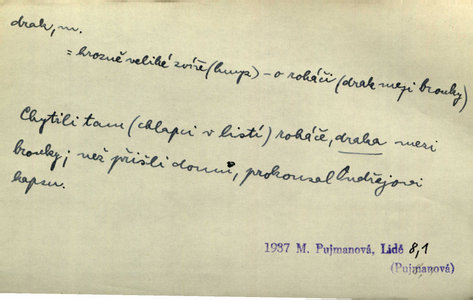 drak, m.
= hrozně veliké zvíře (hmyz) – o roháči (drak mezi brouky)
Chytili tam (chlapci v listí) roháče, draka mezi
brouky; než přišli domů, prokousal Ondřejovi
kapsu.
1937 M. Pujmanová, Lidé 8,1
(Pujmanová)